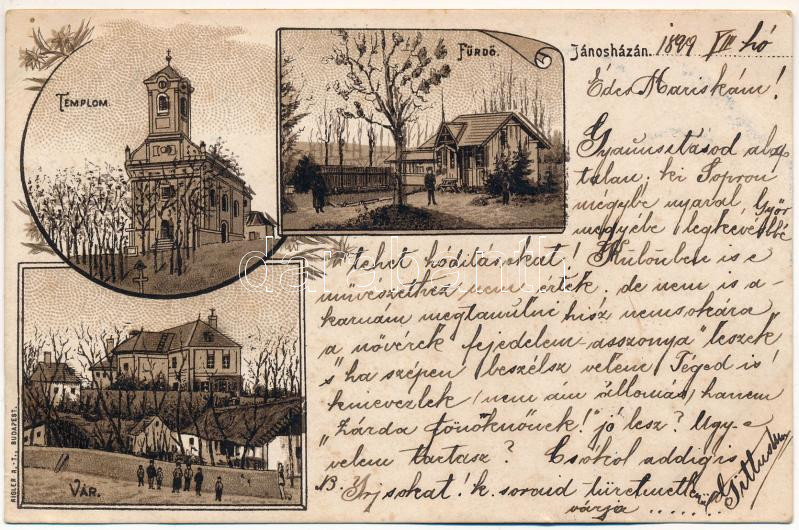 TEMPLOM.
FÜRDŐ.
VÁR.
RIGLER R.-T., BUDAPEST.
Jánosházán. 1899 VIII hó
Édes Mariskám!
Gyanusitásod alap
talan, ki Sopron
megyébe nyaral, Győr
megyébe legkevésbbé
tehet hóditásokat! Különben is e
müvészethez nem értek, de nem is a-
karnám megtanulni hisz nemsokára
a növérek fejedelem-asszonya" leszek
s "ha szépen beszélsz velem Téged is
kinevezlek (nem ám állomás) hanem
"Zárda főnöknőnek!" jó lesz? Ugy-e
velem tartasz? Csókol addig is
13. Irj sokat! k. soraid türelmetl.
várja ......
darabanth